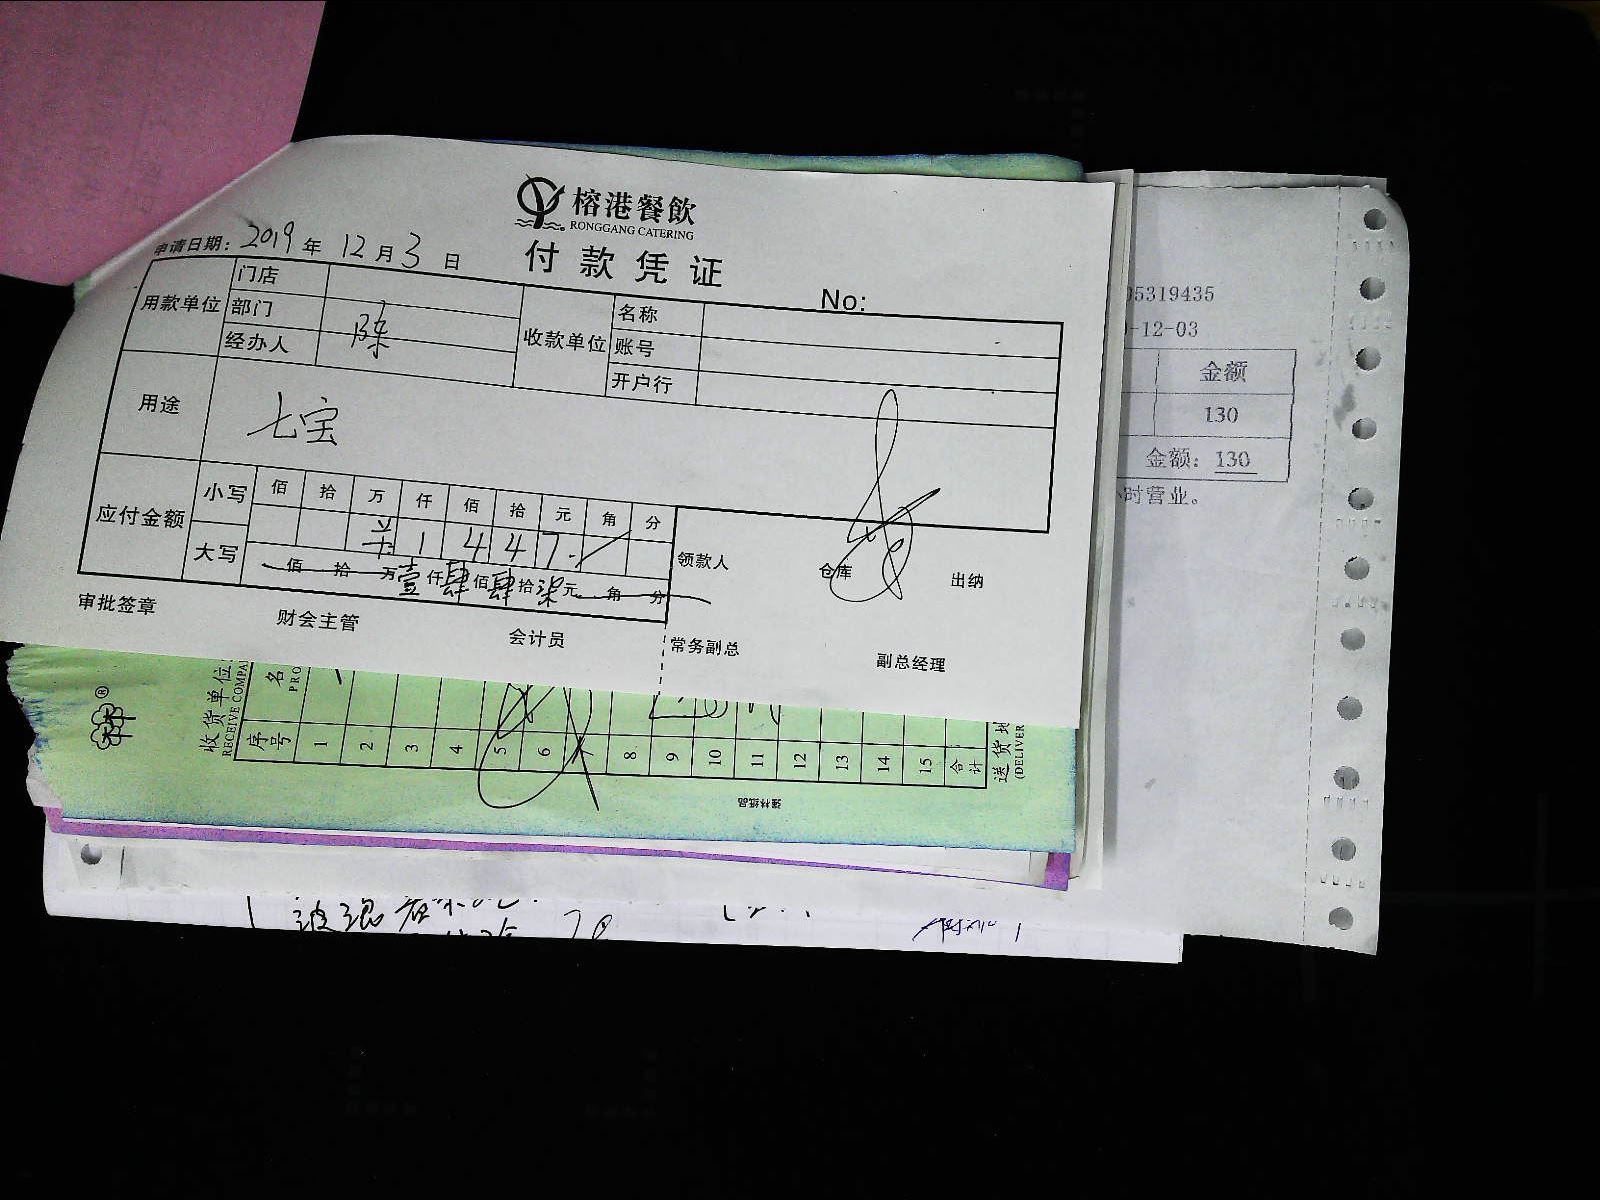 榕港餐飲
RONGGANG CATERING
付款凭证
申请日期: 2019 年 12 月 3 日
No:
用款单位 门店
部门
经办人 陈
收款单位 名称
账号
开户行
用途 七宝
应付金额 小写 佰 拾 万 仟 佰 拾 元 角 分
羊 1 4 4 7.
大写 佰 拾 万 壹 仟 肆 佰 肆 拾 柒 元 角 分
领款人 仓库 出纳
审批签章 财会主管 会计员 常务副总 副总经理
05319435
-12-03
金额
130
金额: 130
小时营业。
收货单位
RECEIVE COMPA
序号 名
PRO
1
2
3
4
5
6
7
8
9
10
11
12
13
14
15
合计
送货地
(DELIVER
强林纸品